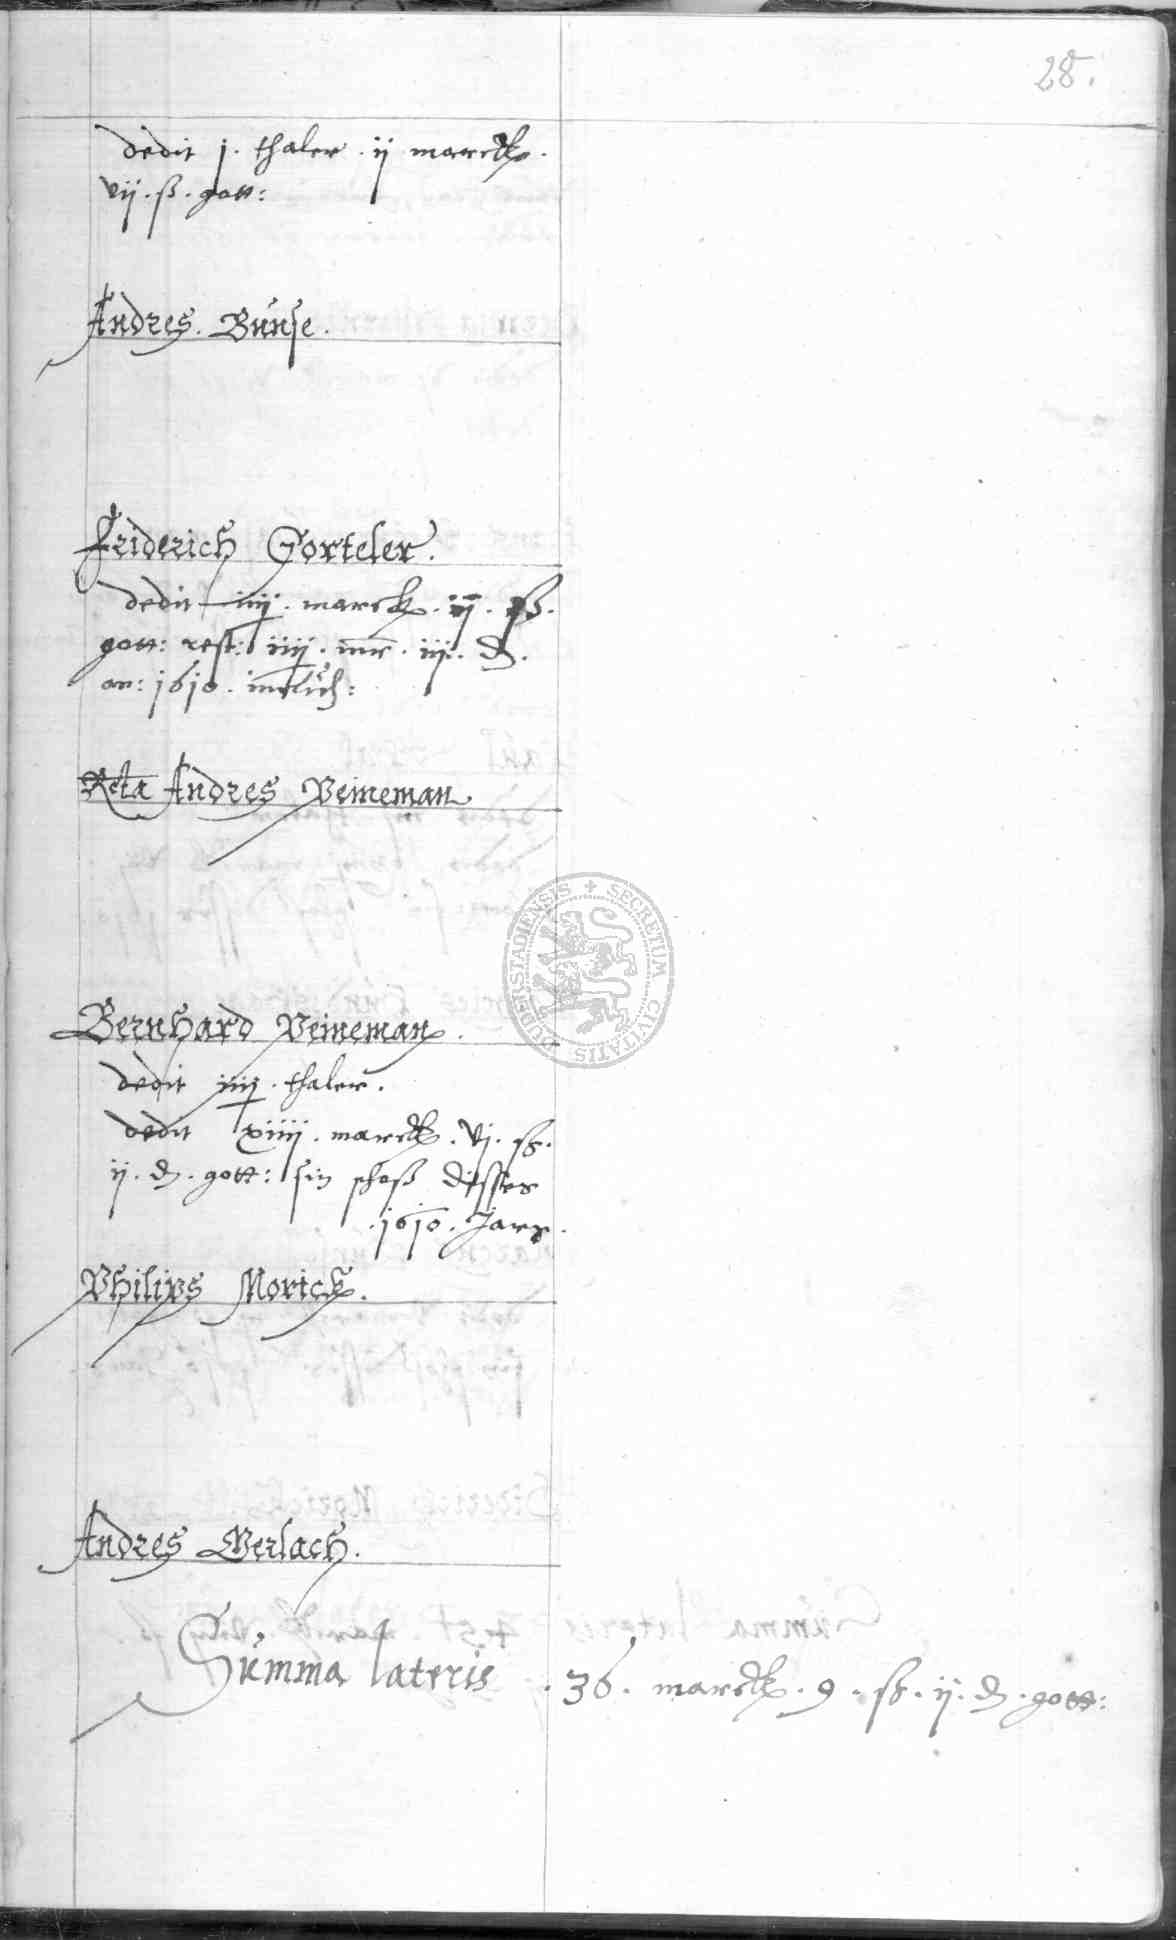 28.
dedit j. thaler. ij marck.
vij. ß. gott:
Andres. Bunse.
Friderich Gorteler.
dedit iiij. marck. ij. ß.
gott: rest: iiij. mr. iij. d.
an: 1610.
Rta Andres Peineman
SECRETUM CIVITATIS DUDERSTADIENSIS
Bernhard Peineman.
dedit iiij. thaler.
dedit xiiij. marck. vj. ß.
ij. d. gott: sin schoß disses
.1610. Jars.
Philips Morick.
Andres Gerlach.
Summa lateris .36. marck. 9. ß. ij. d. gott: